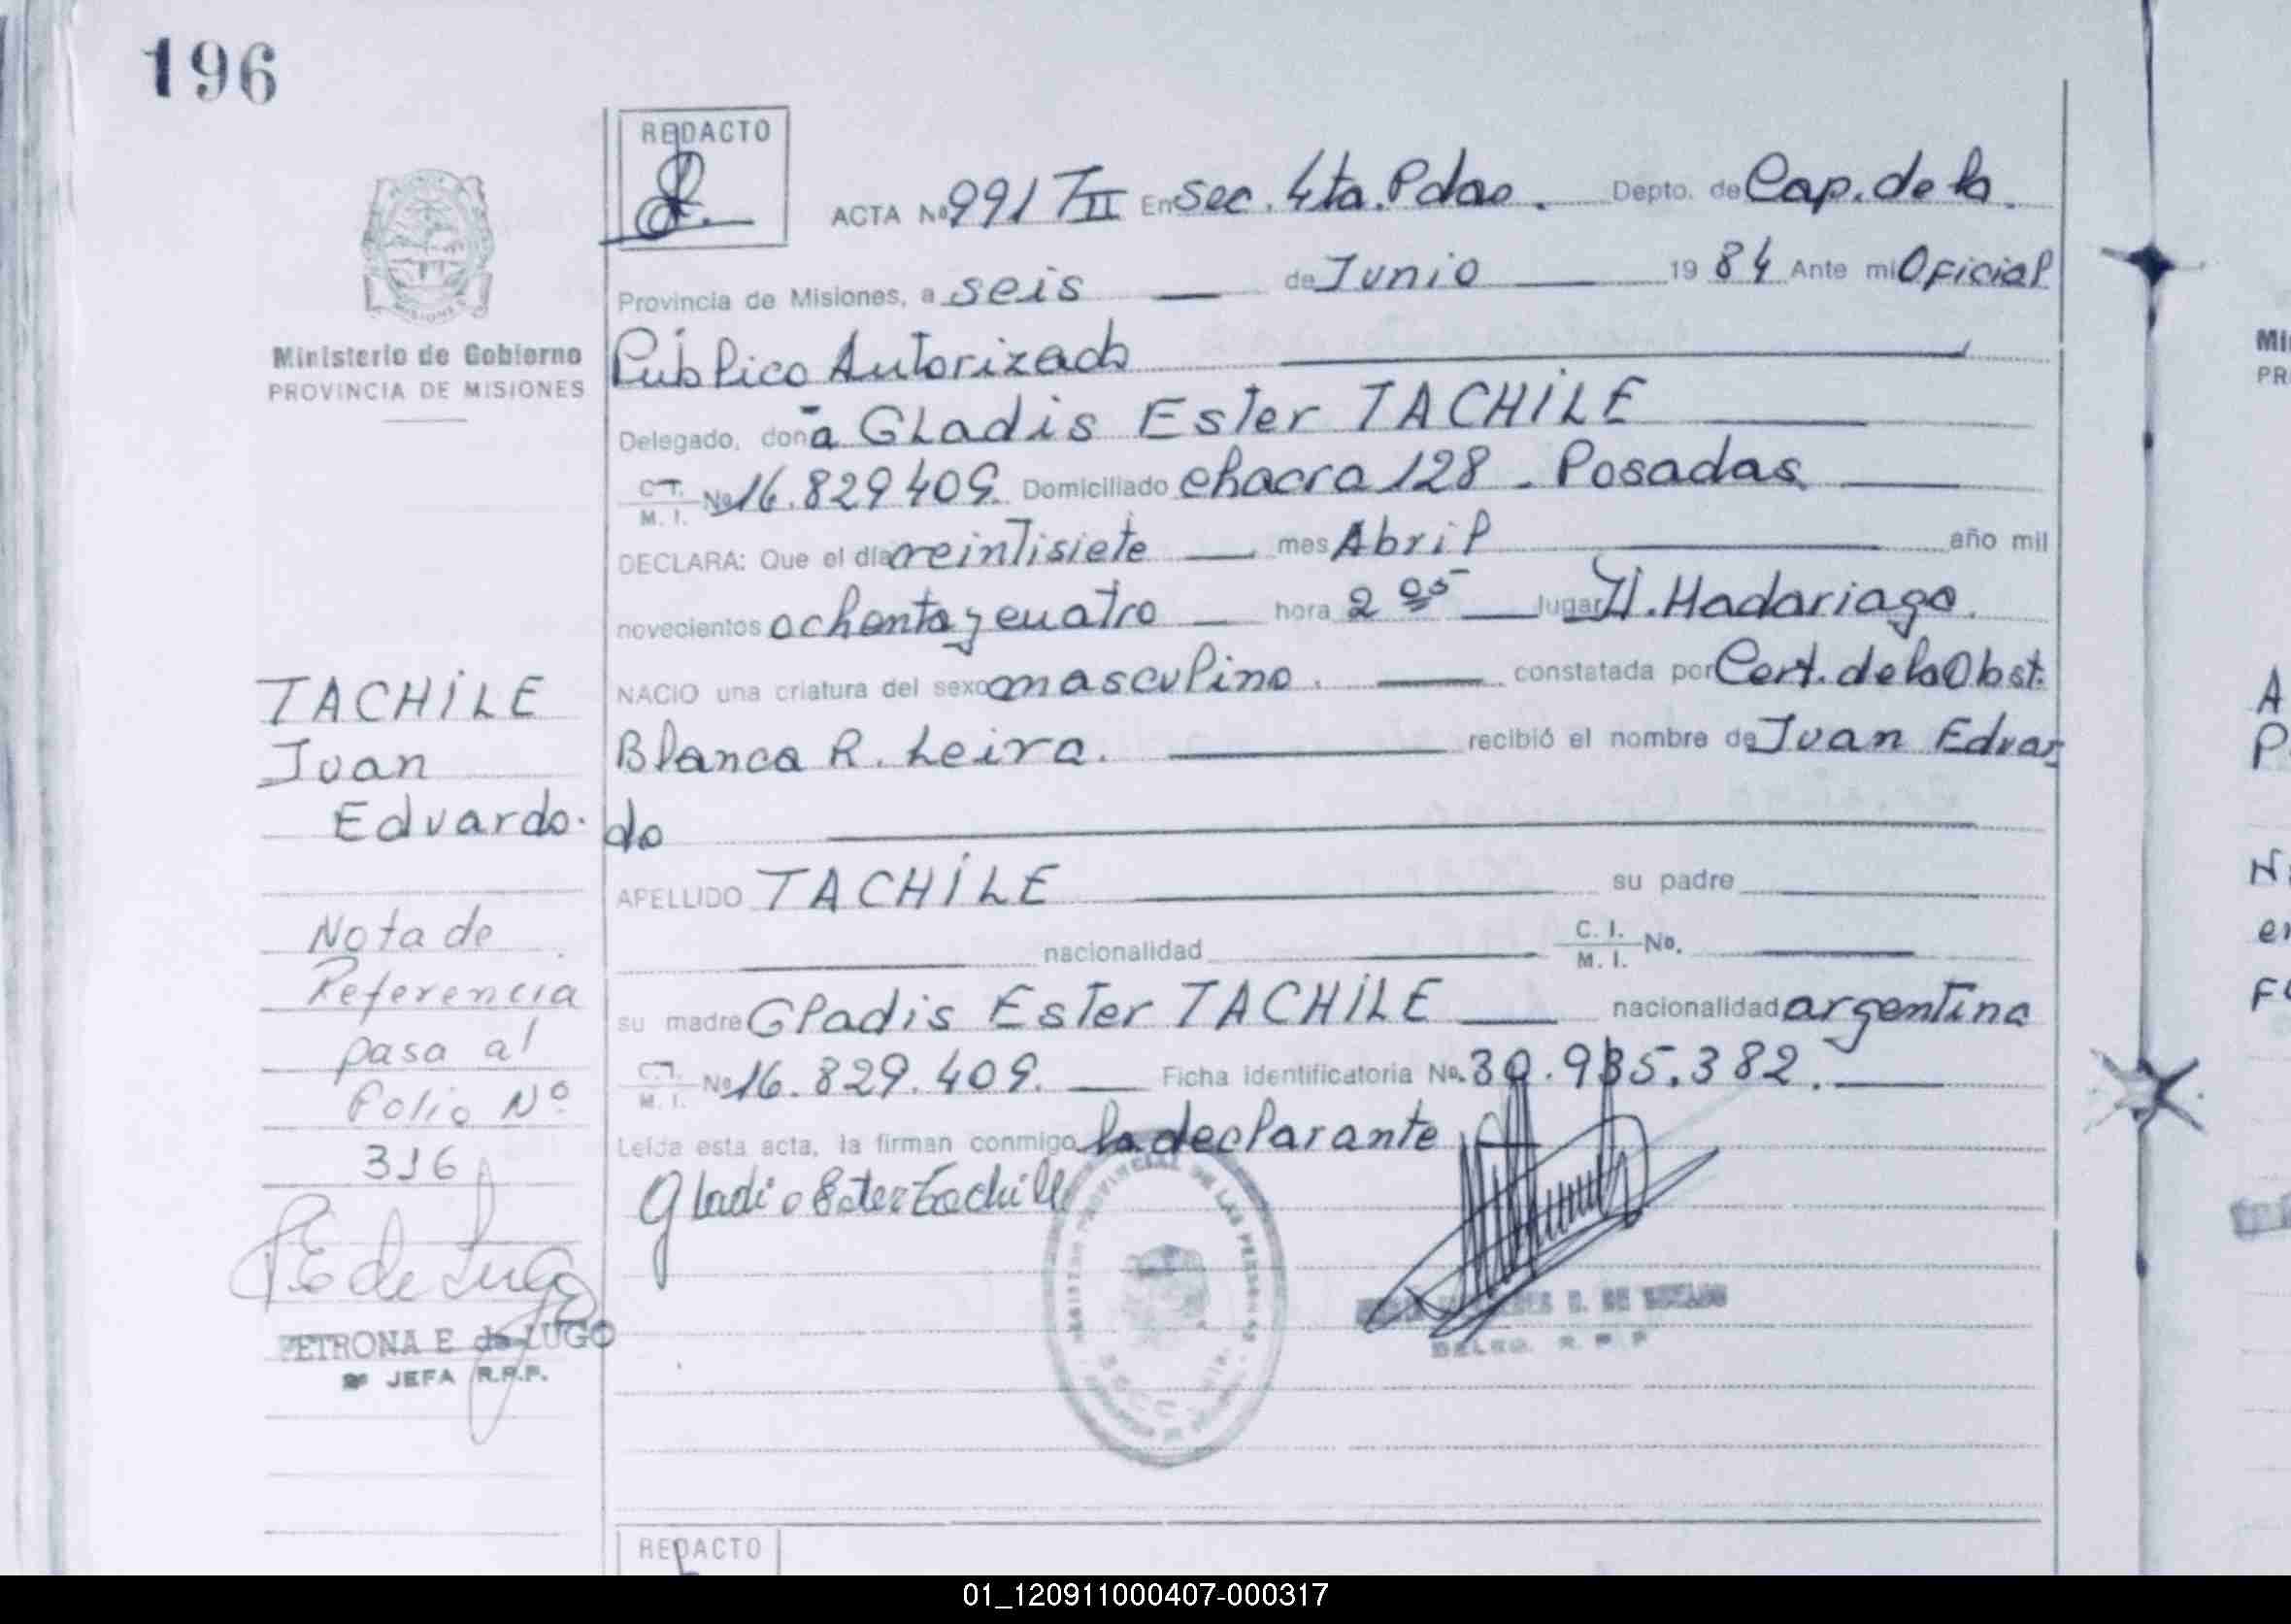 196
REDACTO
ACTA Nº 991 TII En Sec. 4ta. Pdas. Depto. de Cap. de la
Provincia de Misiones, a seis de Junio 1984 Ante mi Oficial
Público Autorizado
Delegado, doña Gladis Ester TACHiLE
C.I. M. I. Nº 16.829409. Domiciliado chacra 128 - Posadas
DECLARA: Que el día veintisiete mes Abril año mil
novecientos ochenta y cuatro hora 2 05 lugar H. Madariaga.
NACIO una criatura del sexo masculino. constatada por Cert. de la Obst.
Blanca R. Leira. recibió el nombre de Juan Eduar
do
APELLIDO TACHiLE su padre
nacionalidad C. I. M. I. No.
su madre Gladis Ester TACHiLE nacionalidad argentina
C.I. M. I. Nº 16.829.409. Ficha identificatoria No. 30.935.382.
Leída esta acta, la firman conmigo la declarante
Gladis Ester Tachile
DELEG. R. P. P
Ministerio de Gobierno
PROVINCIA DE MISIONES
TACHiLE
Juan
Eduardo.
Nota de
Referencia
pasa al
folio Nº
316
PE de Lugo
PETRONA E de LUGO
JEFA R.P.P.
REDACTO
01_120911000407-000317